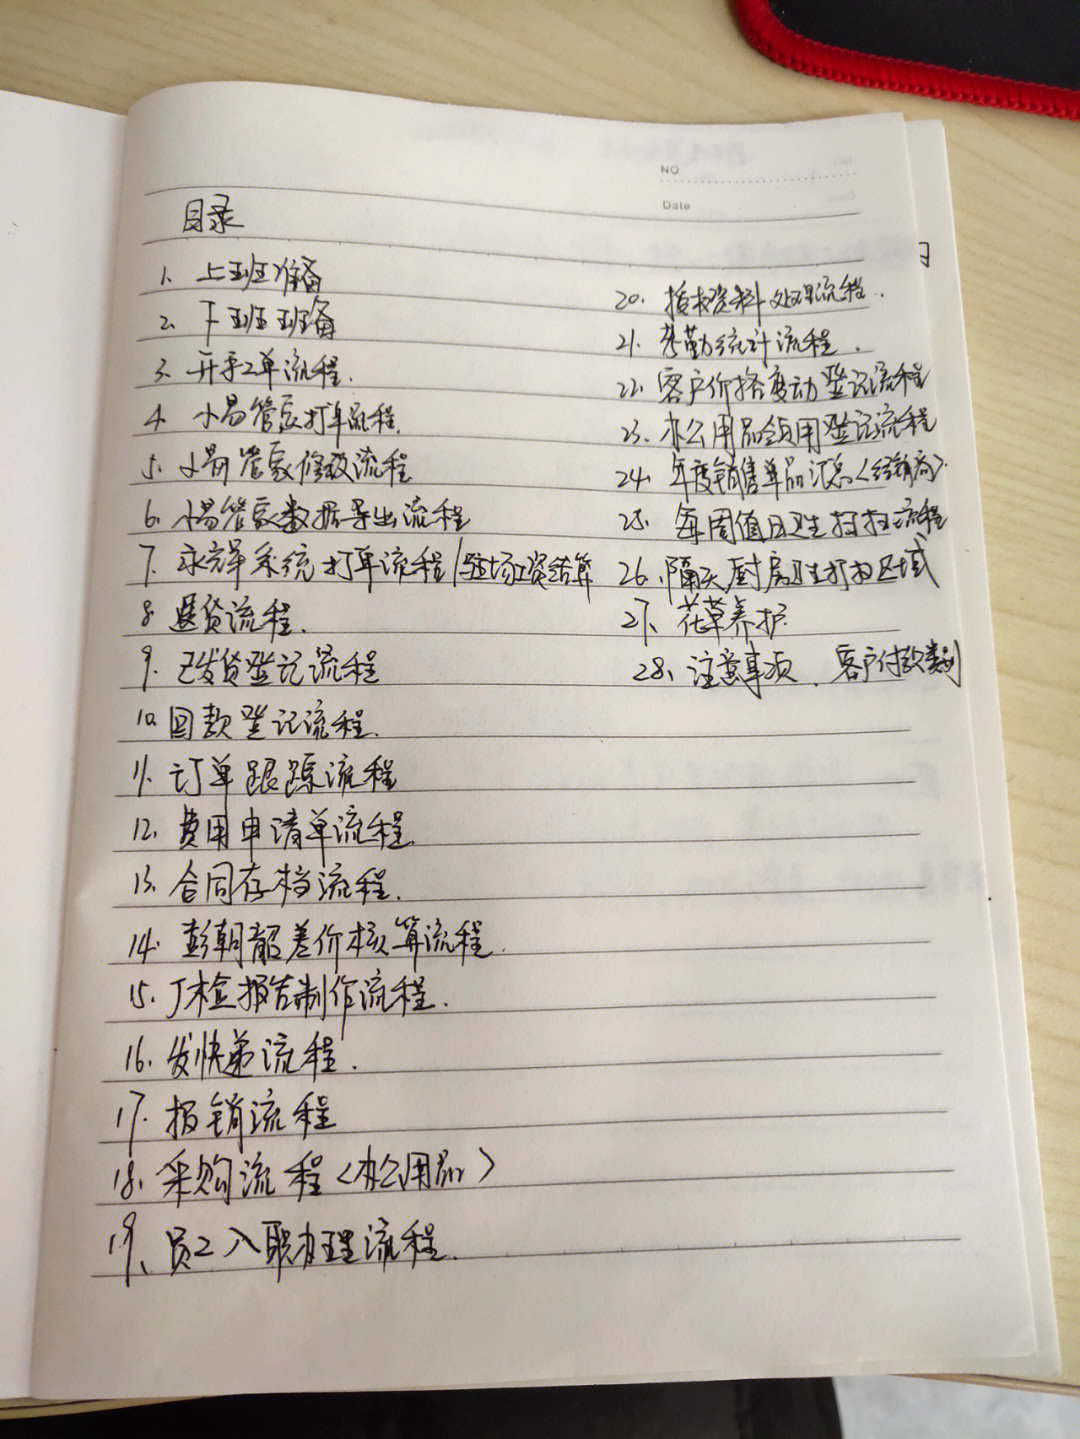 NO
Date
目录
1. 上班准备
2. 下班班备
3. 开手工单流程.
4. 小易管家打单流程.
5. 小易管家修改流程
6. 小易管家数据导出流程
7. 永辉系统打单流程/驻场工资结算
8. 退货流程.
9. 已发货登记流程
10. 回款登记流程.
11. 订单跟踪流程
12. 费用申请单流程.
13. 合同存档流程.
14. 彭朝韶差价核算流程.
15. 厂检报告制作流程.
16. 发快递流程.
17. 报销流程
18. 采购流程<办公用品>
19、员工入职办理流程.
20. 授权资料处理流程.
21. 考勤统计流程.
22. 客户价格变动登记流程
23. 办公用品领用登记流程
24. 年度销售单品汇总<经销商>
25. 每周值日卫生打扫流程
26. 隔天厨房卫生打扫区域
27、花草养护
28、注意事项、客户付款类别